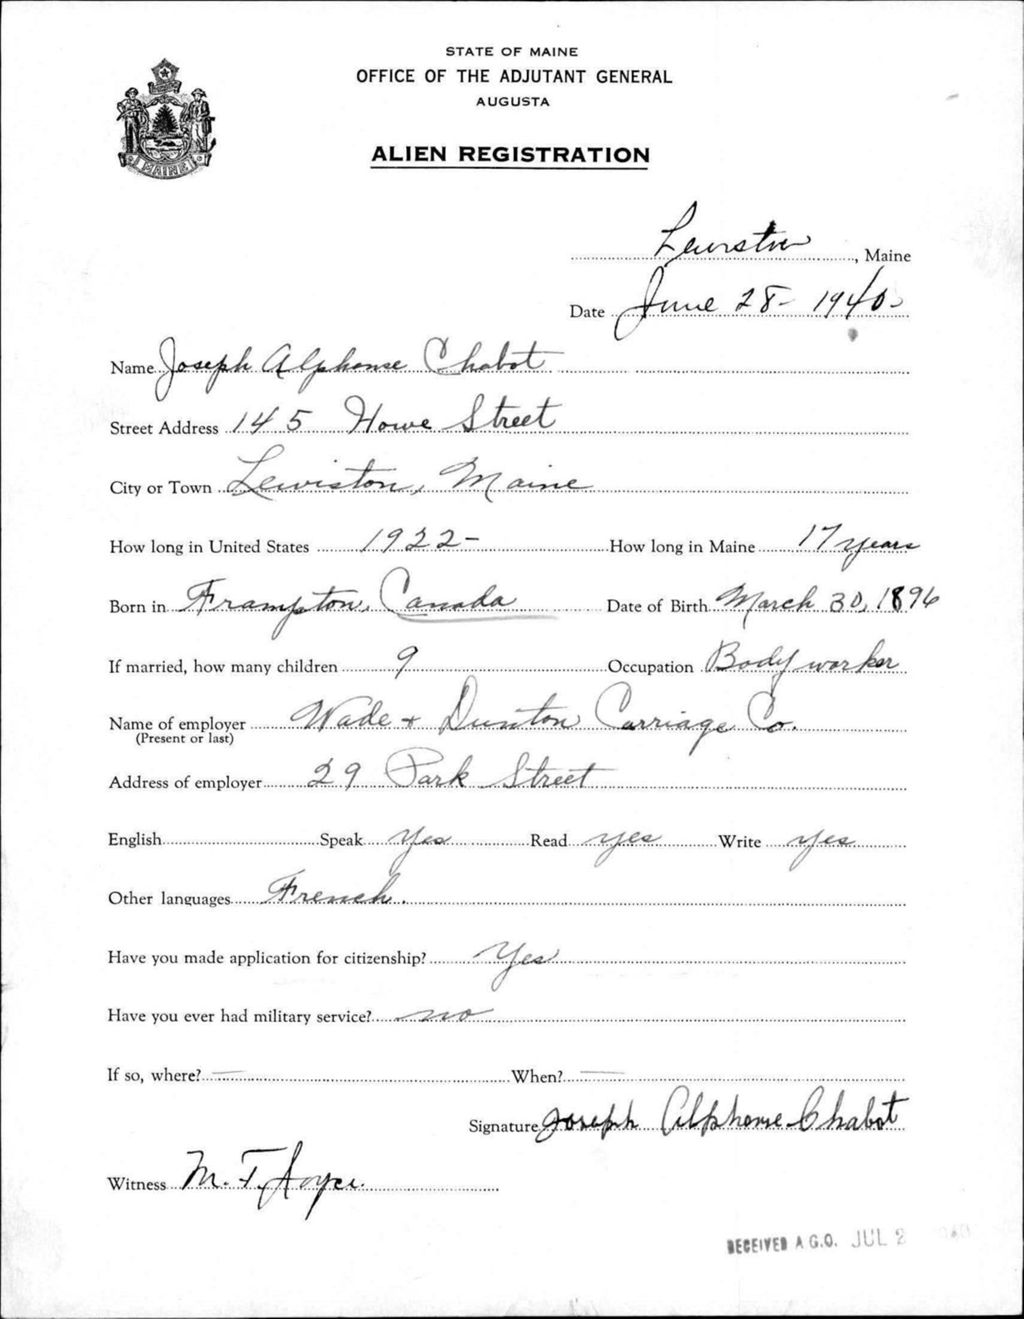 STATE OF MAINE
OFFICE OF THE ADJUTANT GENERAL
AUGUSTA
ALIEN REGISTRATION
MAINE
Lewiston, Maine
Date June 28 - 1940
Name Joseph Alphonse Chabot
Street Address 145 Howe Street
City or Town Lewiston, Maine
How long in United States 1922- How long in Maine 17 years
Born in Frampton, Canada Date of Birth March 30, 1896
If married, how many children 9 Occupation Body worker
Name of employer Wade + Dunton Carriage Co.
(Present or last)
Address of employer 29 Park Street
English Speak Yes Read yes Write yes
Other languages French.
Have you made application for citizenship? Yes
Have you ever had military service? no
If so, where? — When? —
Signature Joseph Alphonse Chabot
Witness M. F. Joyce.
RECEIVED A.G.O. JUL 2